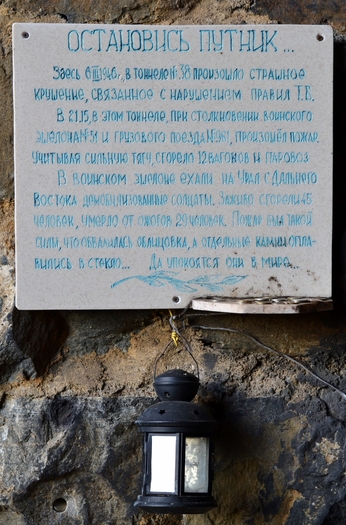 ОСТАНОВИСЬ ПУТНИК...
Здесь 6 III 1946г., в тоннеле №38 произошло страшное
крушение, связанное с нарушением правил Т.Б.
В 21.15, в этом тоннеле, при столкновении воинского
эшелона №51 и грузового поезда № , произошёл пожар.
Учитывая сильную тягу, сгорело 12 вагонов и паровоз
В воинском эшелоне ехали на Урал с Дальнего
Востока демобилизованные солдаты. Заживо сгорели 45
человек, умерло от ожогов 29 человек. Пожар был такой
силы, что обвалилась облицовка, а отдельные камни опла-
вились в стекло... Да упокоятся они в мире...